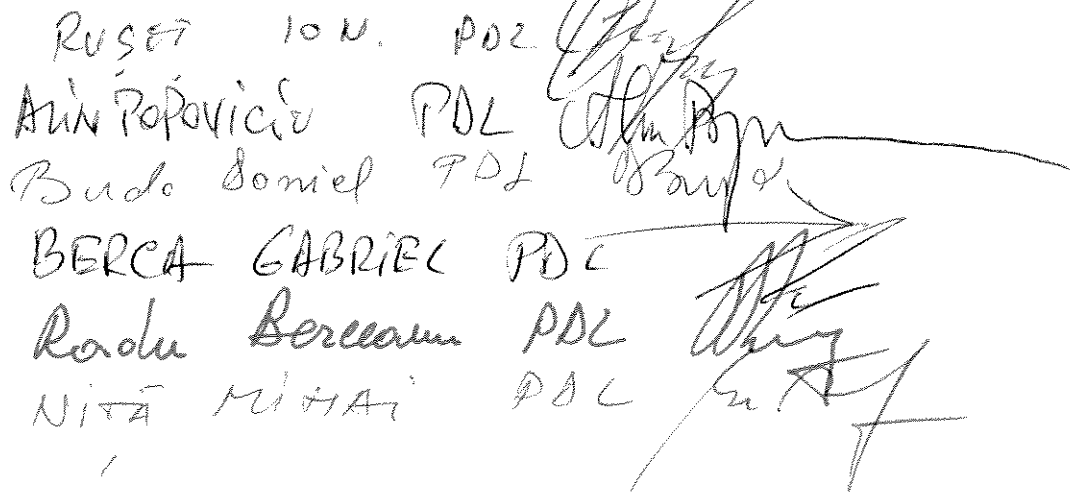 RUȘEȚ ION. PDL
ALIN POPOVICIU PDL
Buda Daniel PDL Buda
BERCA GABRIEL PDL
Radu Berceanu PDL
NIȚĂ MIHAI PDL